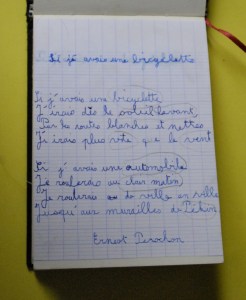 Si j'avais une bicyclette
Si j'avais une bicyclette
J'irais dès le soleil levant
Par les routes blanches et nettes
J'irais plus vite que le vent
Si j'avais une automobile
Je
Je roulerais de ville en ville
Jusqu'aux murailles de Pékin
Ernest Perochon